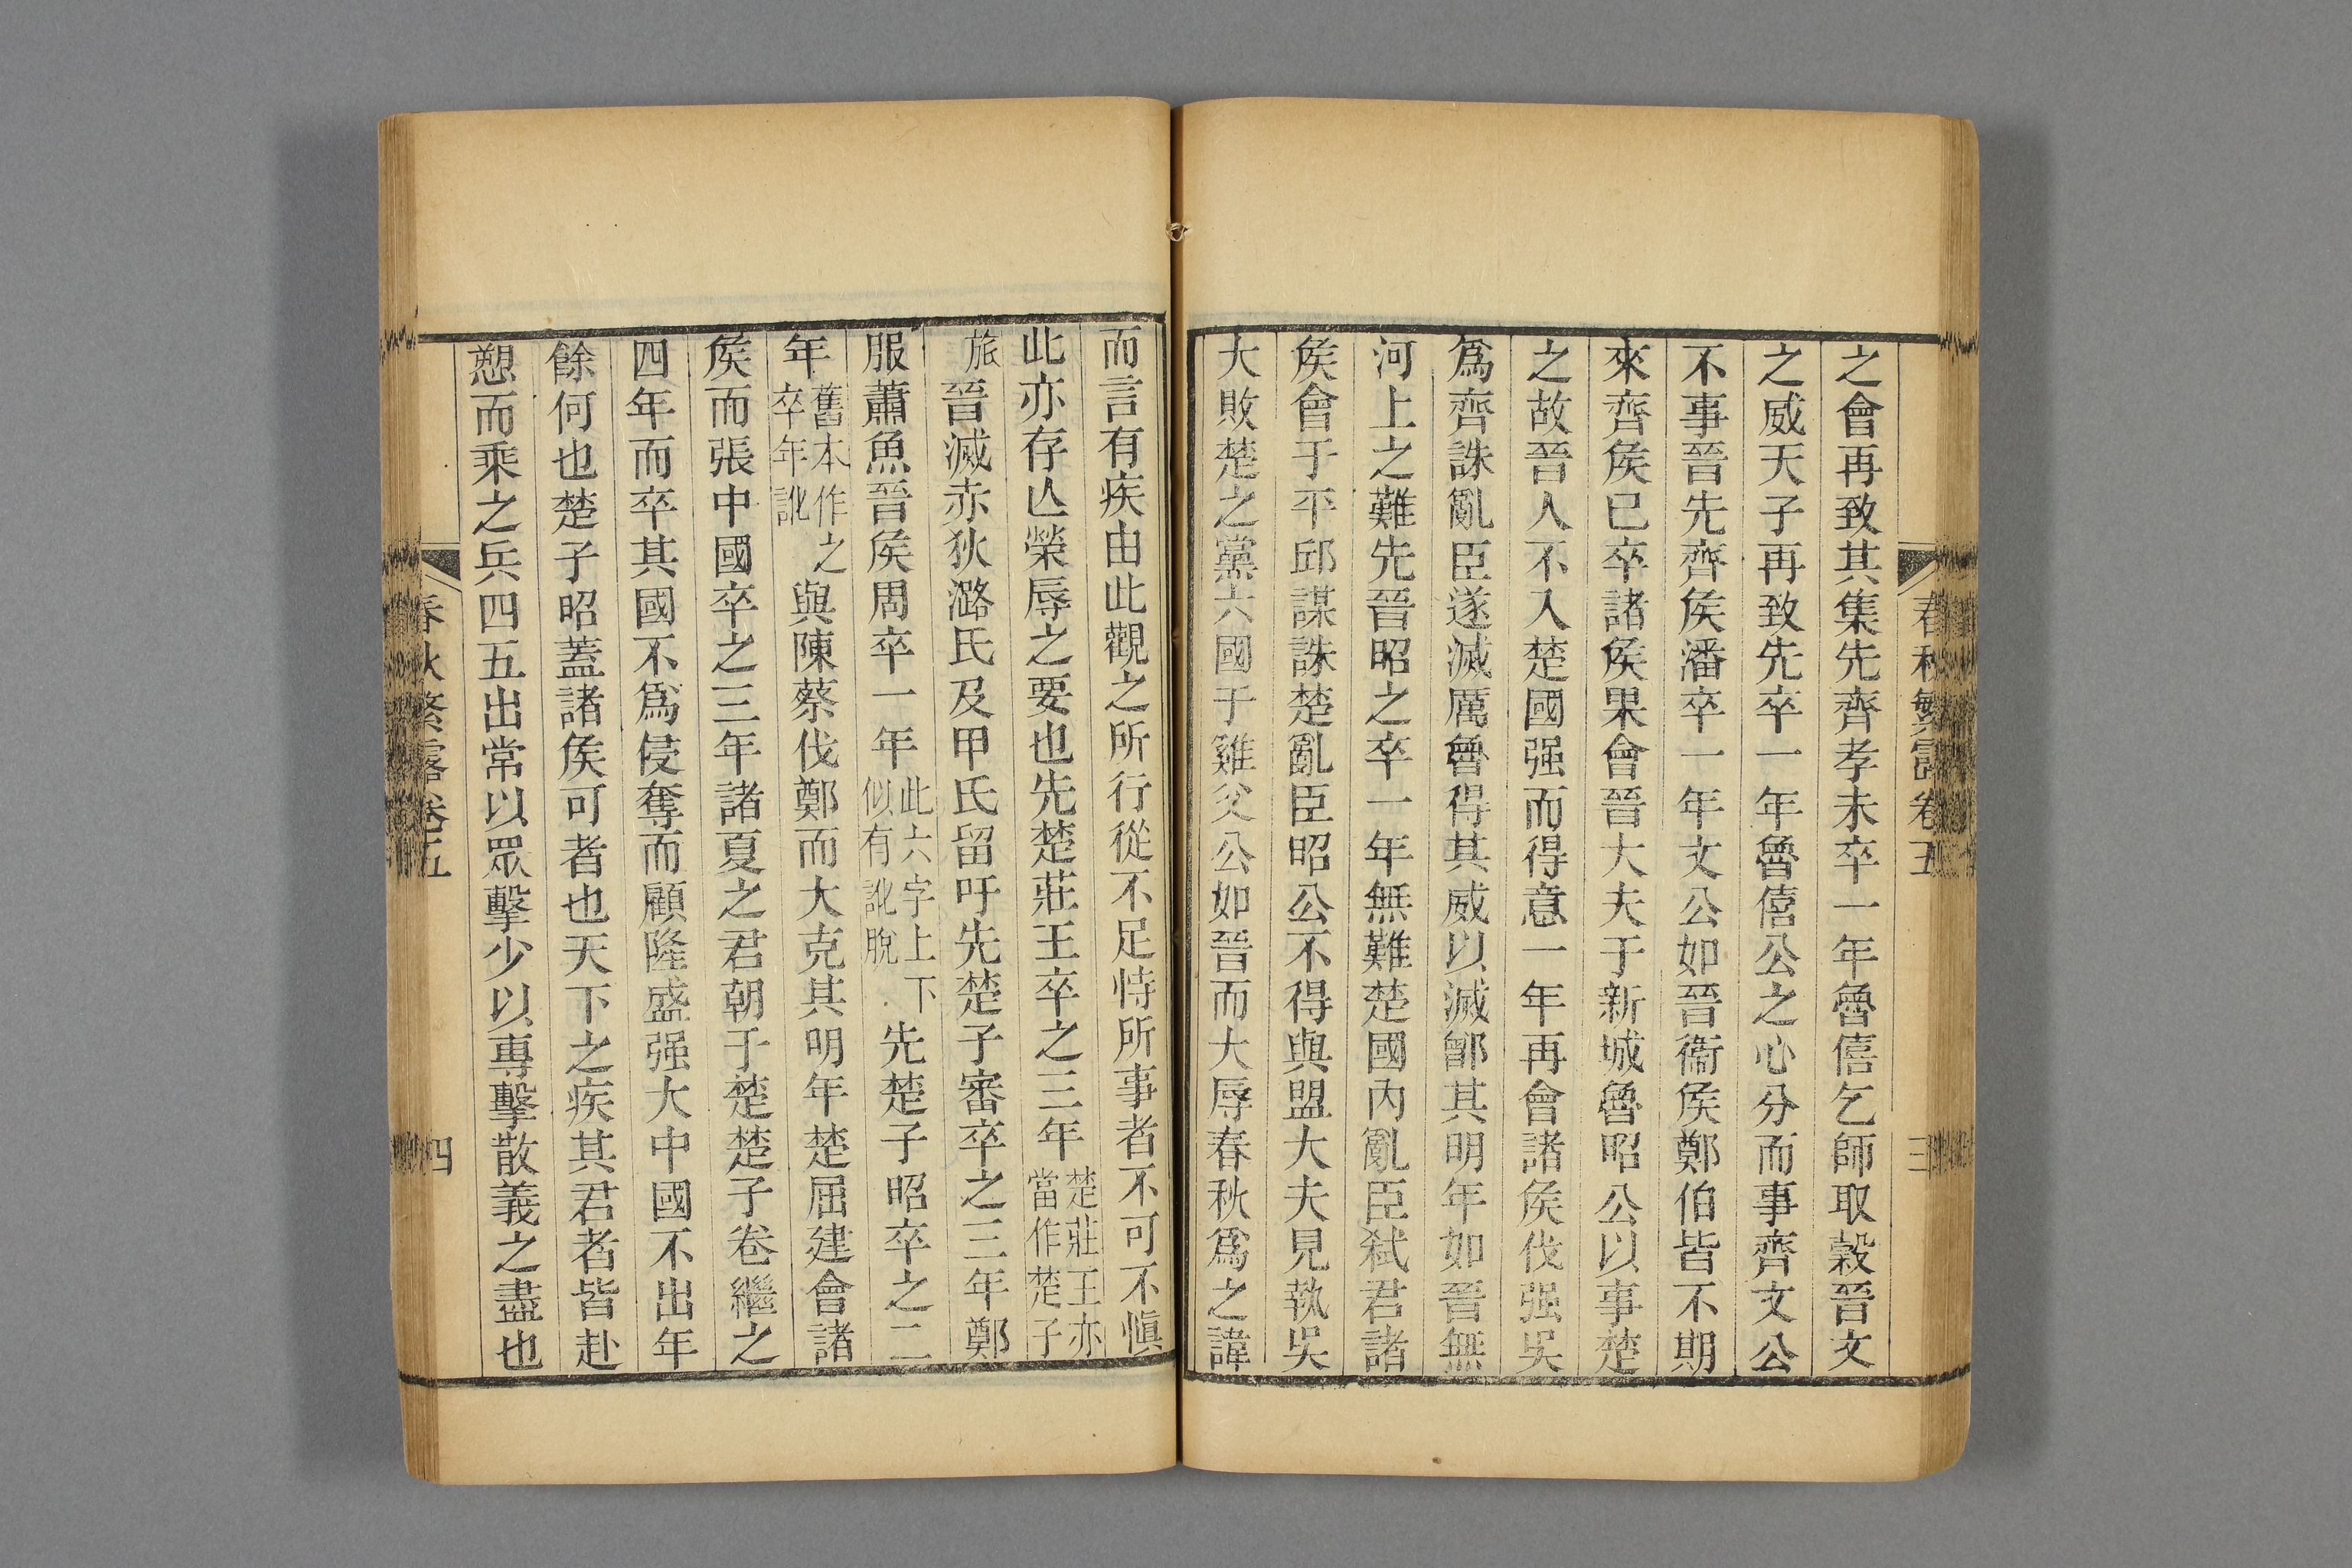 春秋繁露卷五
三
之會再致其集先齊孝未卒一年魯僖乞師取穀晉文
之威天子再致先卒一年魯僖公之心分而事齊文公
不事晉先齊矦潘卒一年文公如晉衞矦鄭伯皆不期
來齊矦已卒諸矦果會晉大夫于新城魯昭公以事楚
之故晉人不入楚國强而得意一年再會諸矦伐强吳
爲齊誅亂臣遂滅厲魯得其威以滅鄫其明年如晉無
河上之難先晉昭之卒一年無難楚國內亂臣弑君諸
矦會于平邱謀誅楚亂臣昭公不得與盟大夫見執吳
大敗楚之黨六國于雞父公如晉而大辱春秋爲之諱
而言有疾由此觀之所行從不足恃所事者不可不愼
此亦存亾榮辱之要也先楚莊王卒之三年楚莊王亦當作楚子
旅晉滅赤狄潞氏及甲氏留吁先楚子審卒之三年鄭
服蕭魚晉矦周卒一年此六字上下似有訛脫先楚子昭卒之二
年舊本作之卒年訛與陳蔡伐鄭而大克其明年楚屈建會諸
矦而張中國卒之三年諸夏之君朝于楚楚子卷繼之
四年而卒其國不爲侵奪而顧隆盛强大中國不出年
餘何也楚子昭蓋諸矦可者也天下之疾其君者皆赴
愬而乘之兵四五出常以眾擊少以專擊散義之盡也
春秋繁露卷五
四